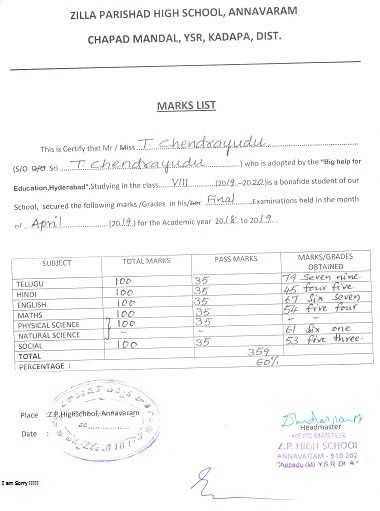 ZILLA PARISHAD HIGH SCHOOL, ANNAVARAM
CHAPAD MANDAL, YSR, KADAPA, DIST.
MARKS LIST
This is Certify that Mr / Miss T. Chendrayudu
(S/O D/O Sri T. Chendrayudu) who is adopted by the "Big help for
Education,Hyderabad",Studying in the class VIII (2019-2020) is a bonafide student of our
School, secured the following marks/Grades in his/her Final Examinations held in the month
of April (2019) for the Academic year 2018 to 2019.
SUBJECT TOTAL MARKS PASS MARKS MARKS/GRADES OBTAINED
TELUGU 100 35 79 Seven nine
HINDI 100 35 45 four five
ENGLISH 100 35 67 Six seven
MATHS 100 35 54 five four
PHYSICAL SCIENCE } 100 35 -
NATURAL SCIENCE - - 61 six one
SOCIAL 100 35 53 five three
TOTAL 359
PERCENTAGE : 60%
Place : Z.P.Highschool, Annavaram
Date :
Headmaster
HEAD MASTER
Z.P. HIGH SCHOOL
ANNAVARAM - 516 362
Chapadu (M) Y S R Dt
I am Sorry !!!!!